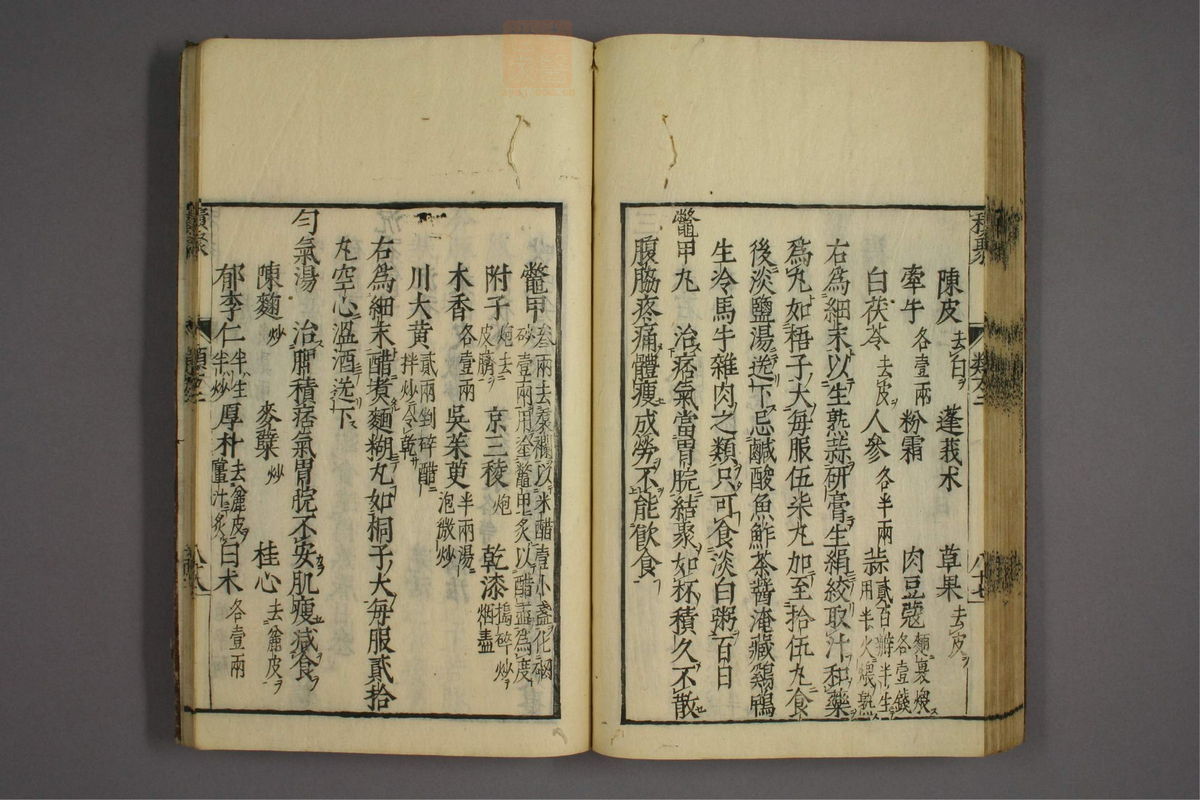 積聚 類方二 八十七
陳皮去白 蓬莪朮 草果去皮
牽牛各壹兩 粉霜 肉豆蔻麵裹煨各壹錢
白茯苓去皮 人參各半兩 蒜貳百瓣半生用半火煨熟
右爲細末以生熟蒜研膏生絹絞取汁和藥
爲丸如梧子大每服伍柒丸加至拾伍丸食
後淡鹽湯送下忌鹹酸魚鮓茶醬淹藏鷄鴨
生冷馬牛雜肉之類只可食淡白粥百日
鱉甲丸 治痞氣當胃脘結聚如杯積久不散
腹脇疼痛體瘦成勞不能飲食
鱉甲 附子炮去皮臍 京三稜炮 乾漆搗碎炒烟盡
木香各壹兩 吳茱萸半兩湯泡微炒
川大黄貳兩剉碎醋拌炒令乾
右爲細末醋煮麵糊丸如桐子大每服貳拾
丸空心溫酒送下
匀氣湯 治脾積痞氣胃脘不安肌瘦減食
陳麯炒 麥糵炒 桂心去麄皮
郁李仁半生半炒 厚朴去麄皮薑汁炙 白朮各壹兩
積聚 類方二